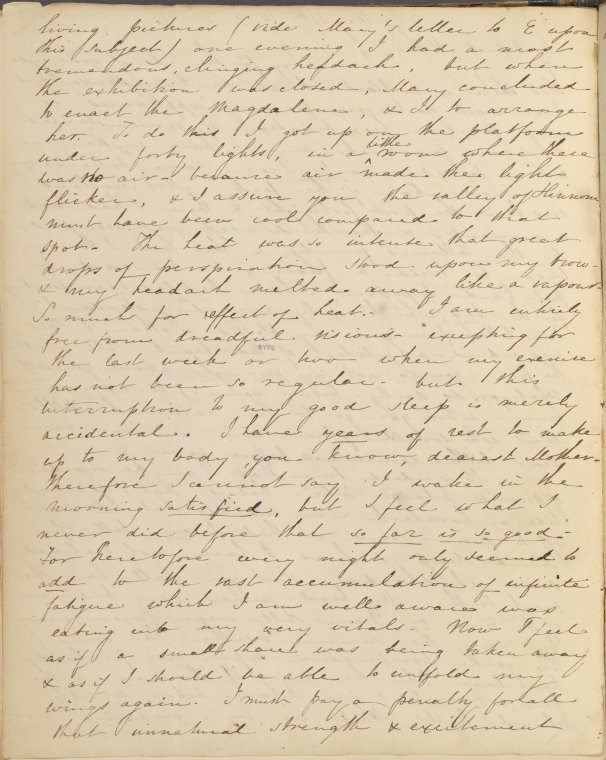 living pictures (vide Mary's letter to E upon
this subject) one evening I had a most
tremendous, clinging headach, but when
the exhibition was closed, Mary concluded
to enact the Magdalene, & I to arrange
her. To do this I got up on the platform
under forty lights, in a little room where there
was no air - because air made the lights
flicker, & I assure you the valley of Hinnom
must have been cool compared to that
spot. The heat was so intense that great
drops of perspiration stood upon my brow -
& my headach melted away like a vapour -
So much for effect of heat. - I am entirely
free from dreadful visions - excepting for
the last week or two when my exercise
has not been so regular - but this
interruption to my good sleep is merely
accidental. I have years of rest to make
up to my body, you know, dearest Mother -
Therefore I cannot say I wake in the
morning satisfied, but I feel what I
never did before that so far is so good -
For heretofore every night only seemed to
add to the vast accumulation of infinite
fatigue which I am well aware was
eating into my very vitals - Now I feel
as if a small share was being taken away
& as if I should be able to unfold my
wings again. I must pay a penalty for all
that unnatural strength & excitement